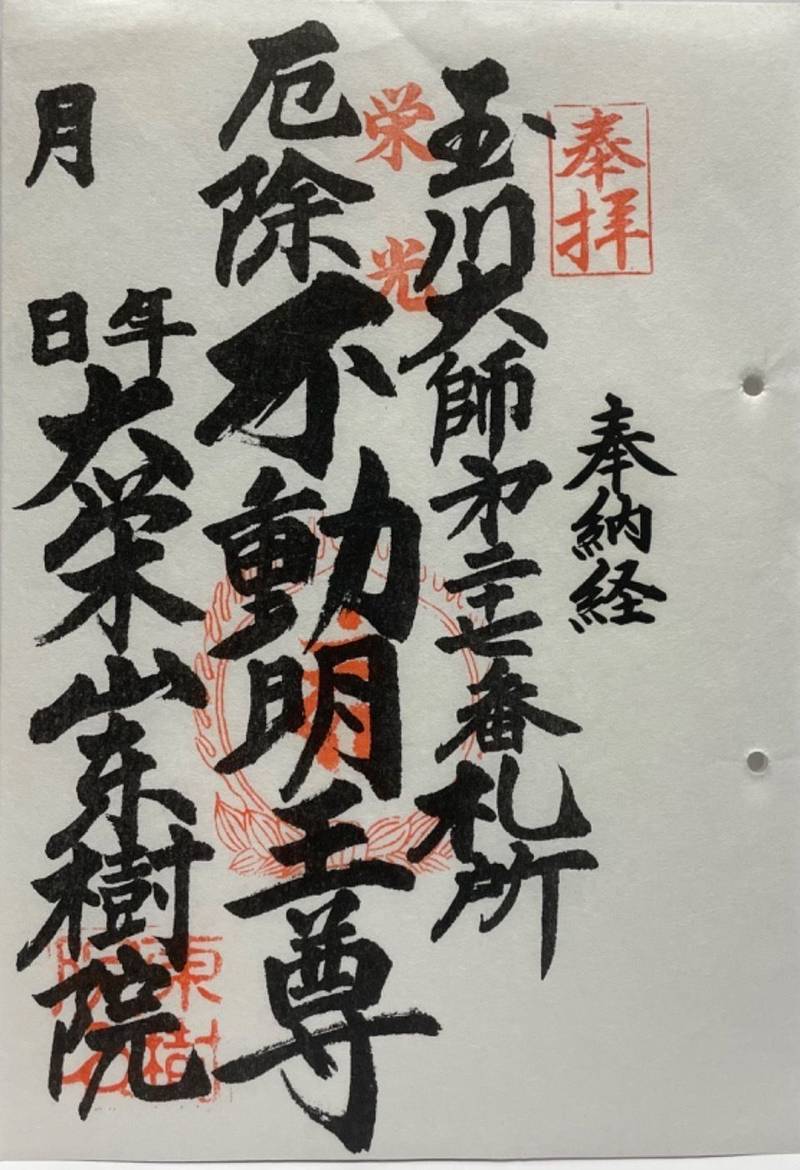 奉拝
奉納経
玉川大師㐧二十七番札所
栄光
厄除不動明王尊
年
月 日
大栄山東樹院
東樹